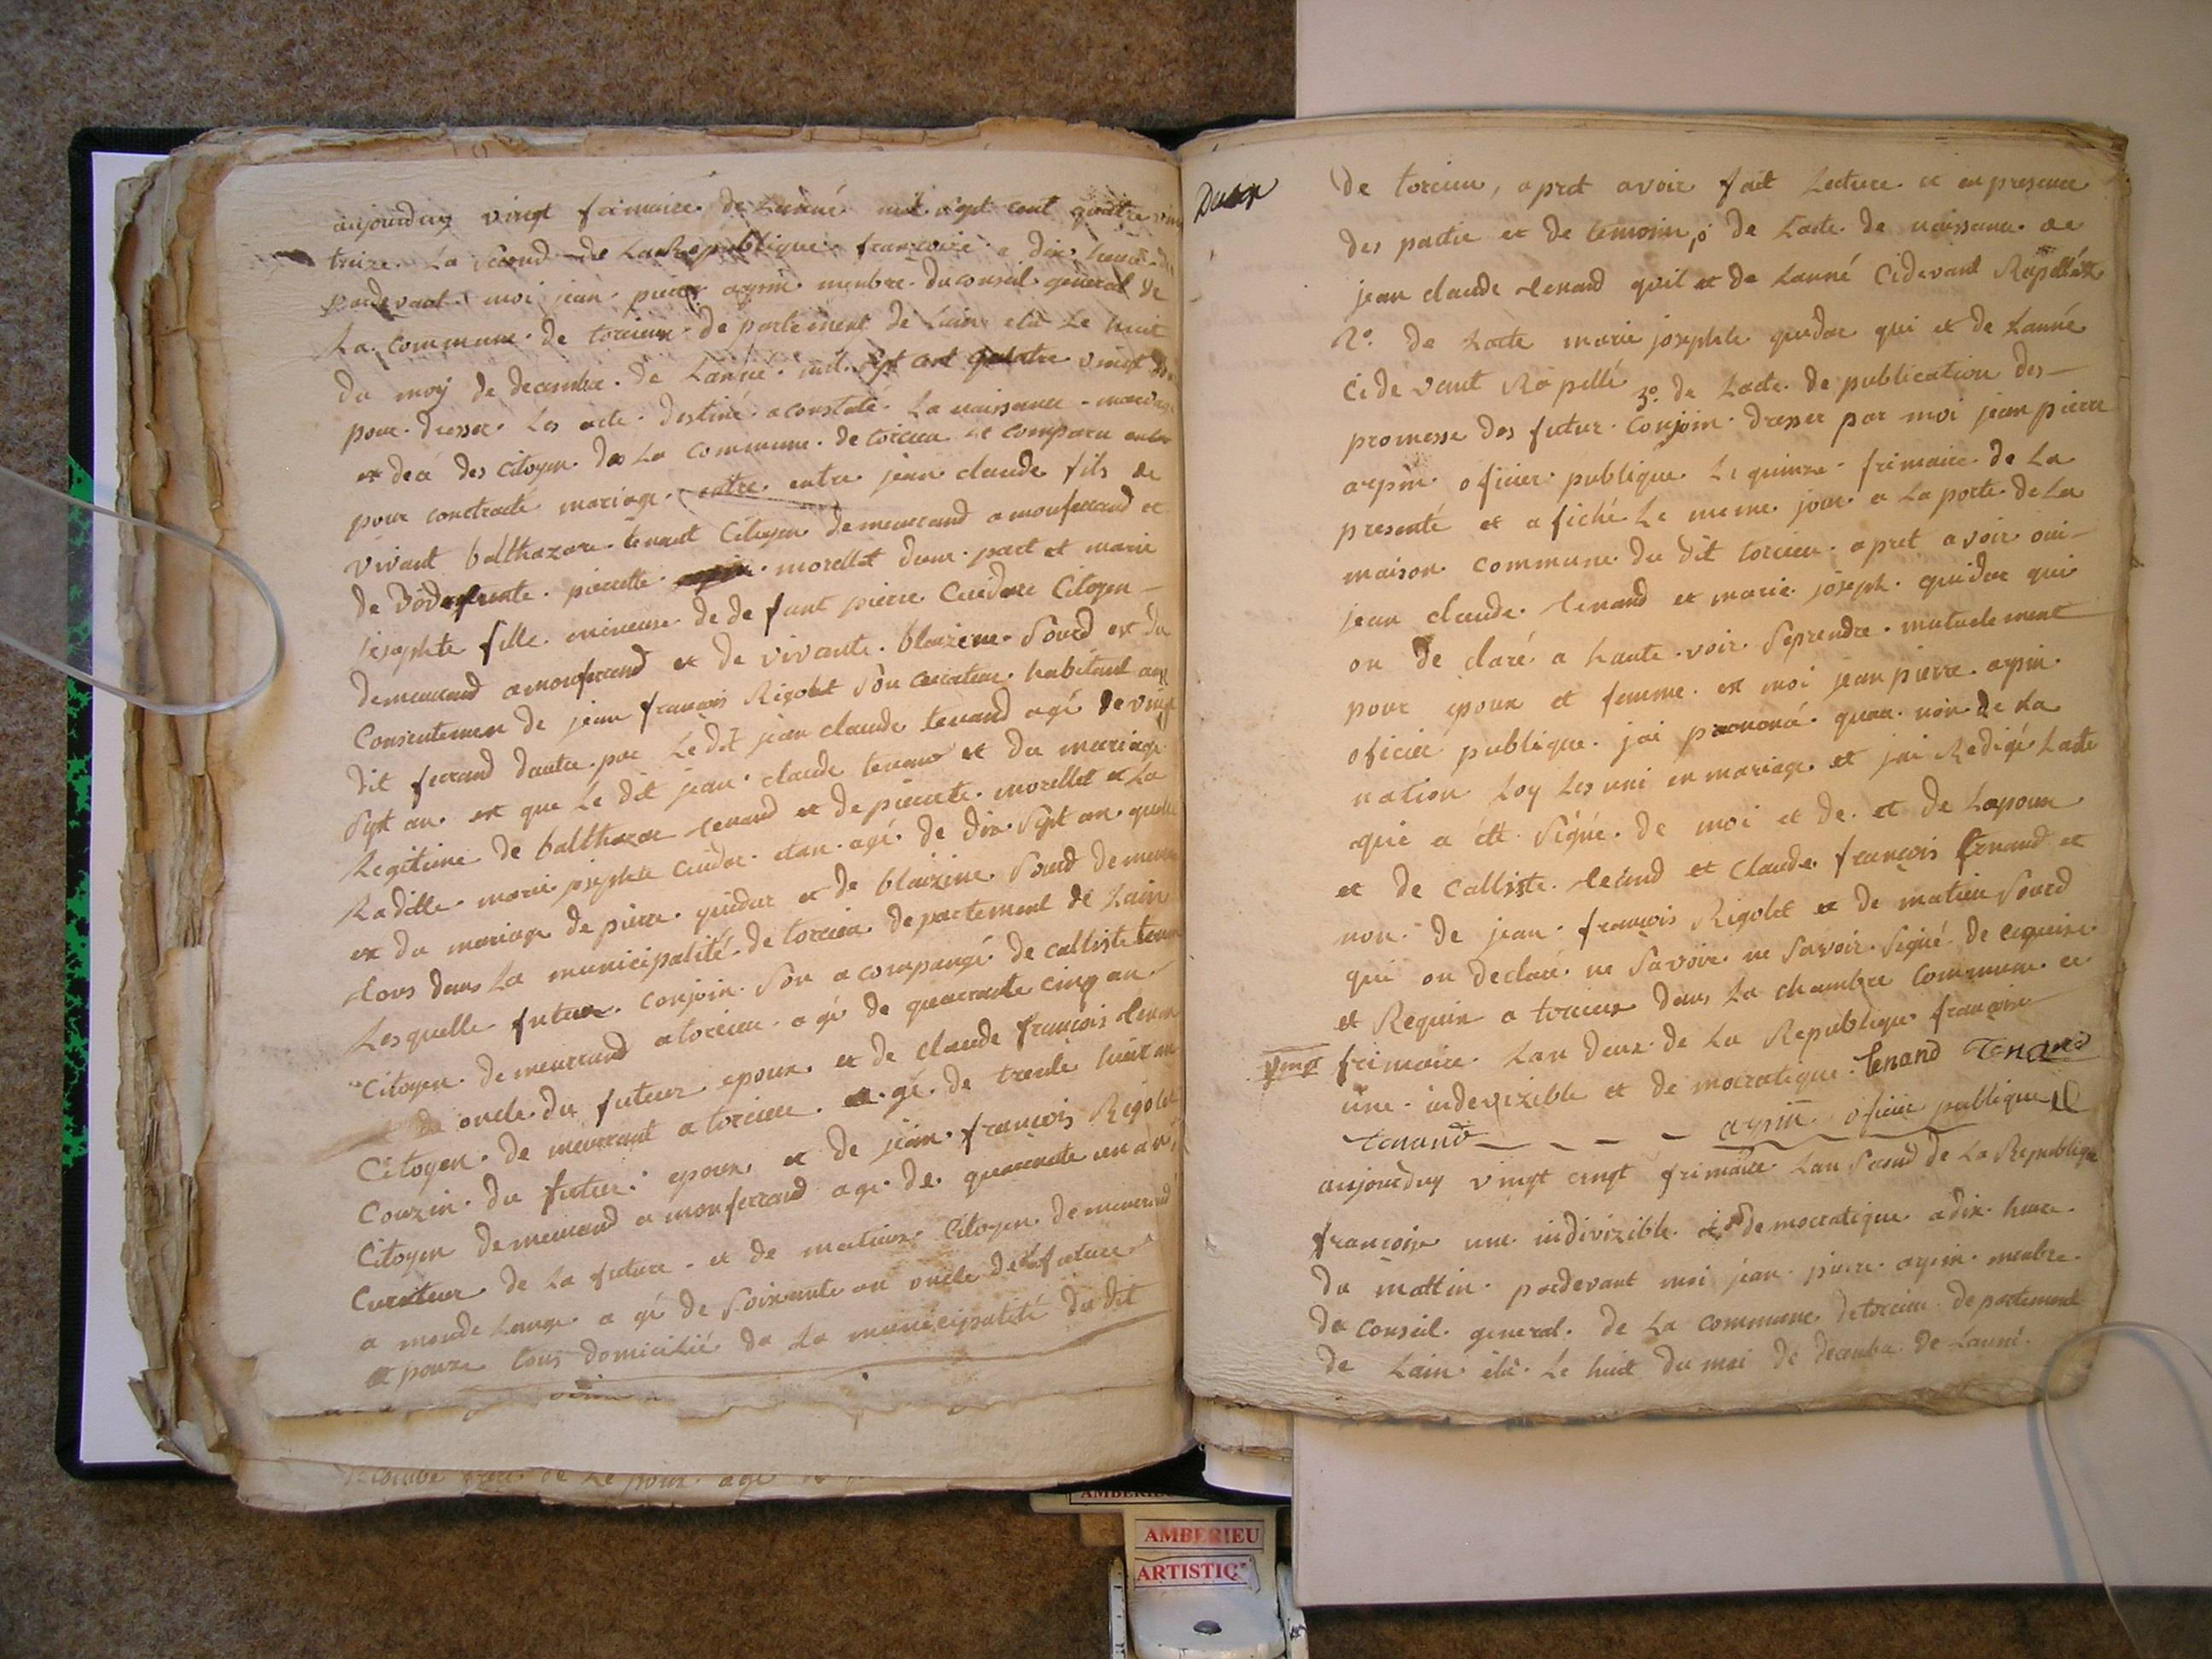 aujourduy vingt frimaire de Lanné mil sept cent quatre vin
treize La second de La Republique françoise a dix heure
pardevant moi jean pierre arpin menbre du conseil general de
La commune de torcieu departement de Lain elu Le huit
du moy de decembre de Lanné mil sept cent quatre vingt
pour dresser Les acte destiné a constaté La naissance mariage
et decé des citoyen de La commune de torcieu et comparu
pour contracté mariage entre entre jean claude fils de
vivant balthazare tenant Citoyen demeurand a monferrand et
de pierrette morellet dune part et marie
josephte fille mineure de defunt pierre Cuidare Citoyen
demeurand amonferrand et de vivante blaizine Sourd et du
Consentemen de jean francois Rigolet Son curateur habitant au
dit ferrand dautre par Le dit jean claude tenand agé de vingt
Sept an et que Le dit jean claude tenand et du mariage
Legitime de balthazar tenand et de pierrete morellet et La
Ladille marie josephte Cuidar etan agé de dix Sept an quelle
et du mariage de pierre guidar et de blaizine Sourd
tous dans La municipalité de torcieu departement de Lain
Lesquelle futur conjoin Son acompangé de calliste
Citoyen demeurrand atorcieu agé de quarante cinq an
oncle du futeur epoux et de claude françois tenan
Citoyen demeurrant a torcieu agé de trente huit an
Couzin du futeur epoux et de jean francois Rigolet
Citoyen demeurand a monferrand agé de quarente un an
Curateur de La future et de matieu Citoyen
a monde Lange agé de Soixante an oncle de La future
epouze tous domicilié de La municipalité du dit
AMBERIEU
ARTISTIQ
de torcieu, apret avoir fait Lecture et en presence
des partie et de temoin, de Lacte de naissance de
jean claude tenand quil et de Lanné Cidevant Rapellé
2º. de Lacte marie josephte guidar qui et de Lanné
cidevant Rapellé 3º. de Lacte de publication des
promesse des futur conjoin dresser par moi jean pierre
arpin oficier publique Le quinze frimaire de La
presenté et afiché Le meme jour a La porte de La
maison commune du dit torcieu apret avoir oui
jean claude tenand et marie joseph guidar qui
on declaré a haute voix Seprendre mutuelement
pour epoux et femme et moi jean pierre arpin
oficier publique jai prononcé quau non de La
nation Loy Les uni en mariage et jai Redigé Lacte
qui a été Signé de moi et de et de Lepoux
et de Calliste tenand et Claude françois tenand et
non de jean françois Rigolet et de matieu Sourd
qui on declaré ne Savoir ne Savoir Signé de
et Requin a torcieu dans La chambre commune ce
vingt frimaire Lan deux de La Republique françoise
une indevizible et democratique tenand Tenand
Tenand arpin oficier publique
aujourduy vingt cingt frimaire Lan Second de La Republique
françoise une indivizible et democratique adix heure
du mattin pardevant moi jean pierre arpin menbre
du Conseil general de La commune de torcieu departement
de Lain élu Le huit du moi de decembre de Lanné